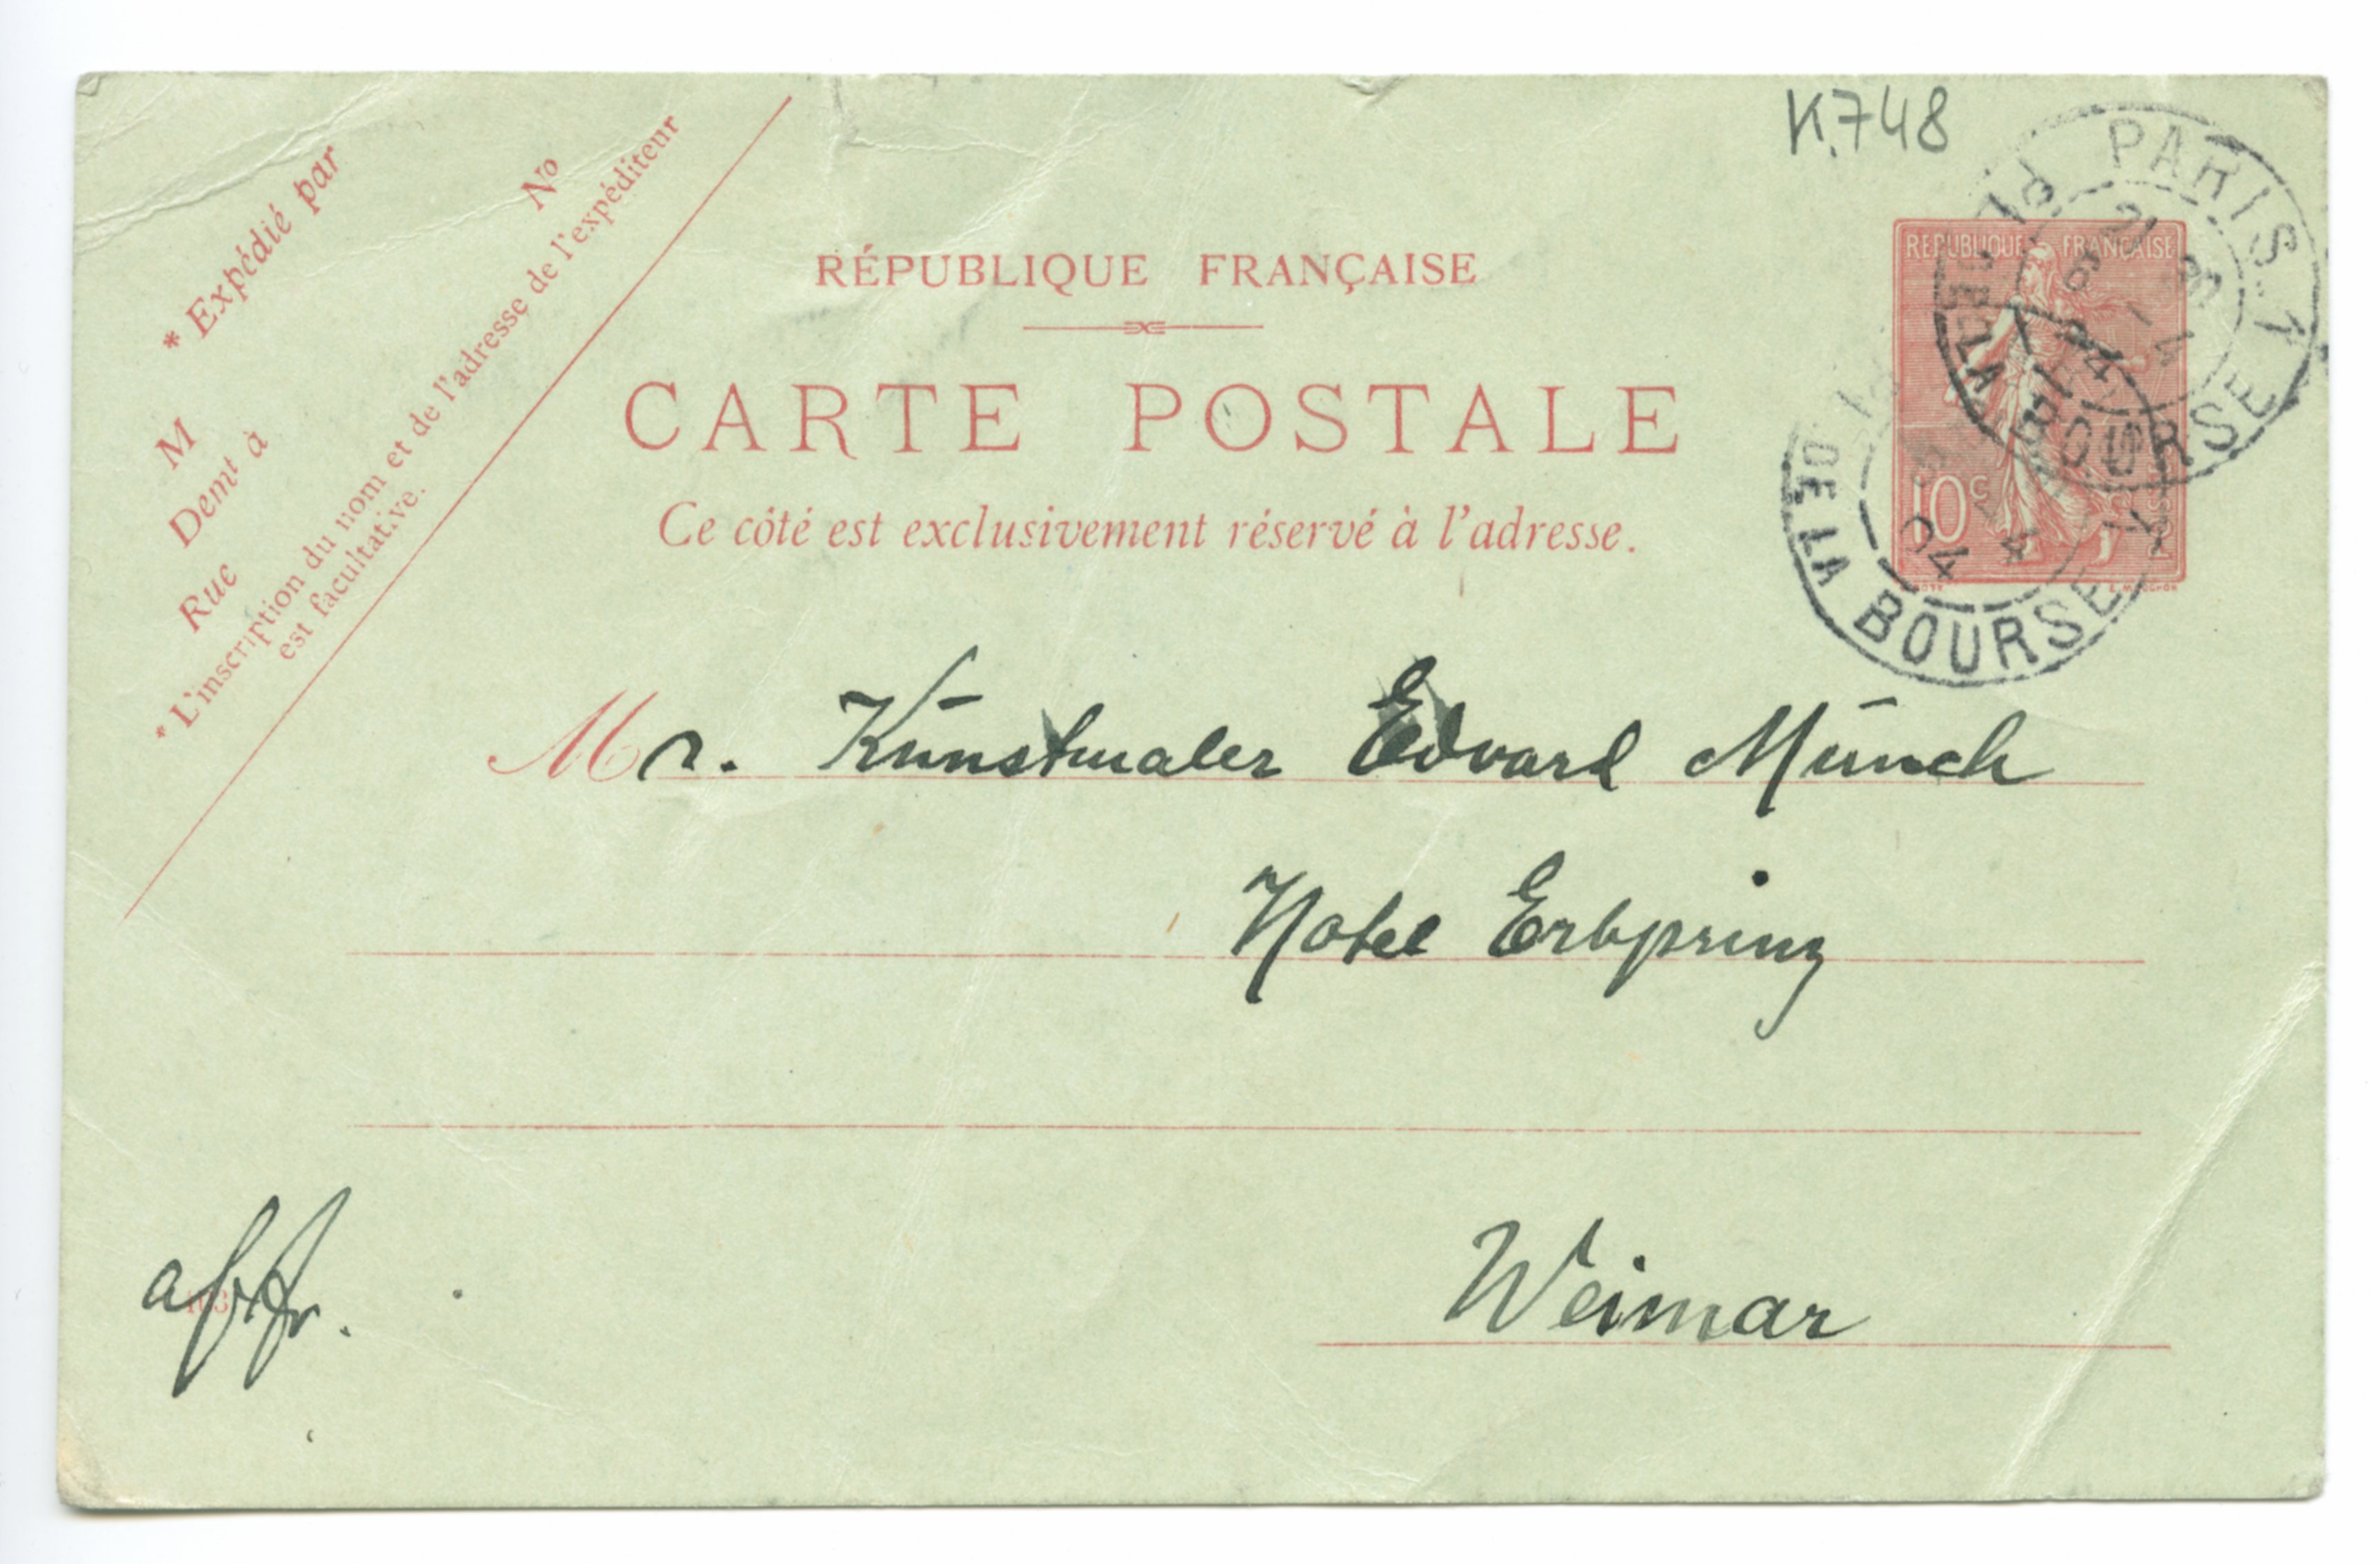 K.748
* Expédié par
No
M
Demt à
Rue
* L'inscription du nom et de l'adresse de l'expéditeur
est facultative.
RÉPUBLIQUE FRANÇAISE
CARTE POSTALE
Ce côté est exclusivement réservé à l'adresse.
REPUBLIQUE FRANÇAISE
10c
PARIS.1
BOURSE
04
DE LA BOURSE
04
Mr. Kunstmaler Edvard Munch
Hotel Erbprinz
Weimar